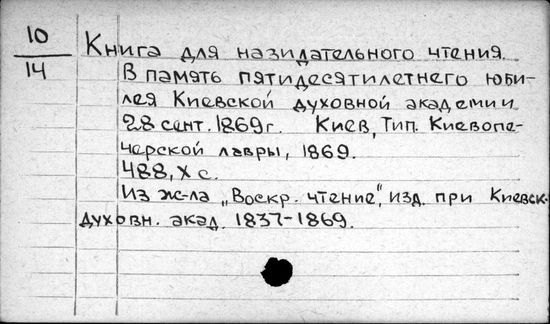 10
14
Книга для назидательного чтения.
В память пятидесятилетнего юби-
лея Киевской духовной академии
28 сент. 1869 г. Киев, Тип. Киевопе-
черской лавры, 1869.
488, X с.
Из ж-ла „Воскр. чтение", изд. при Киевск.
духовн. акад. 1837-1869.